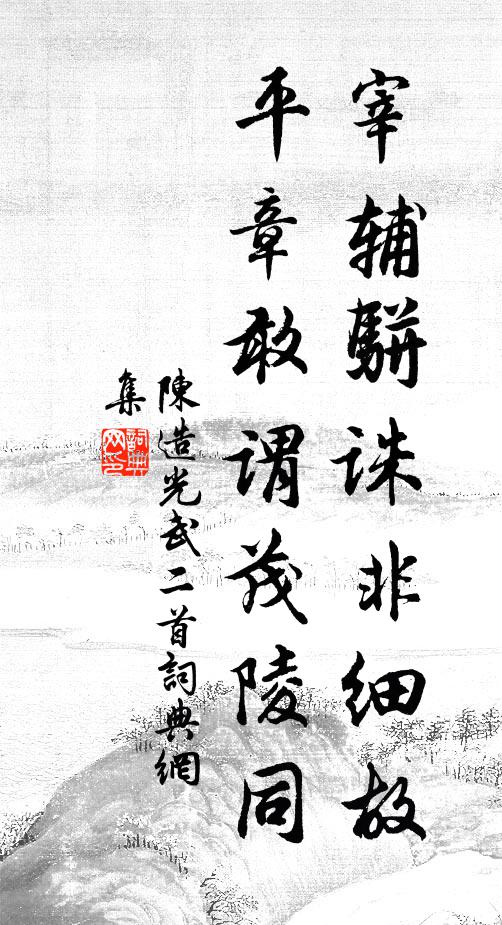 宰辅骈诛非细故
平章敢谓茂陵同
陳造光武二首詞典網
集
詞典
网印